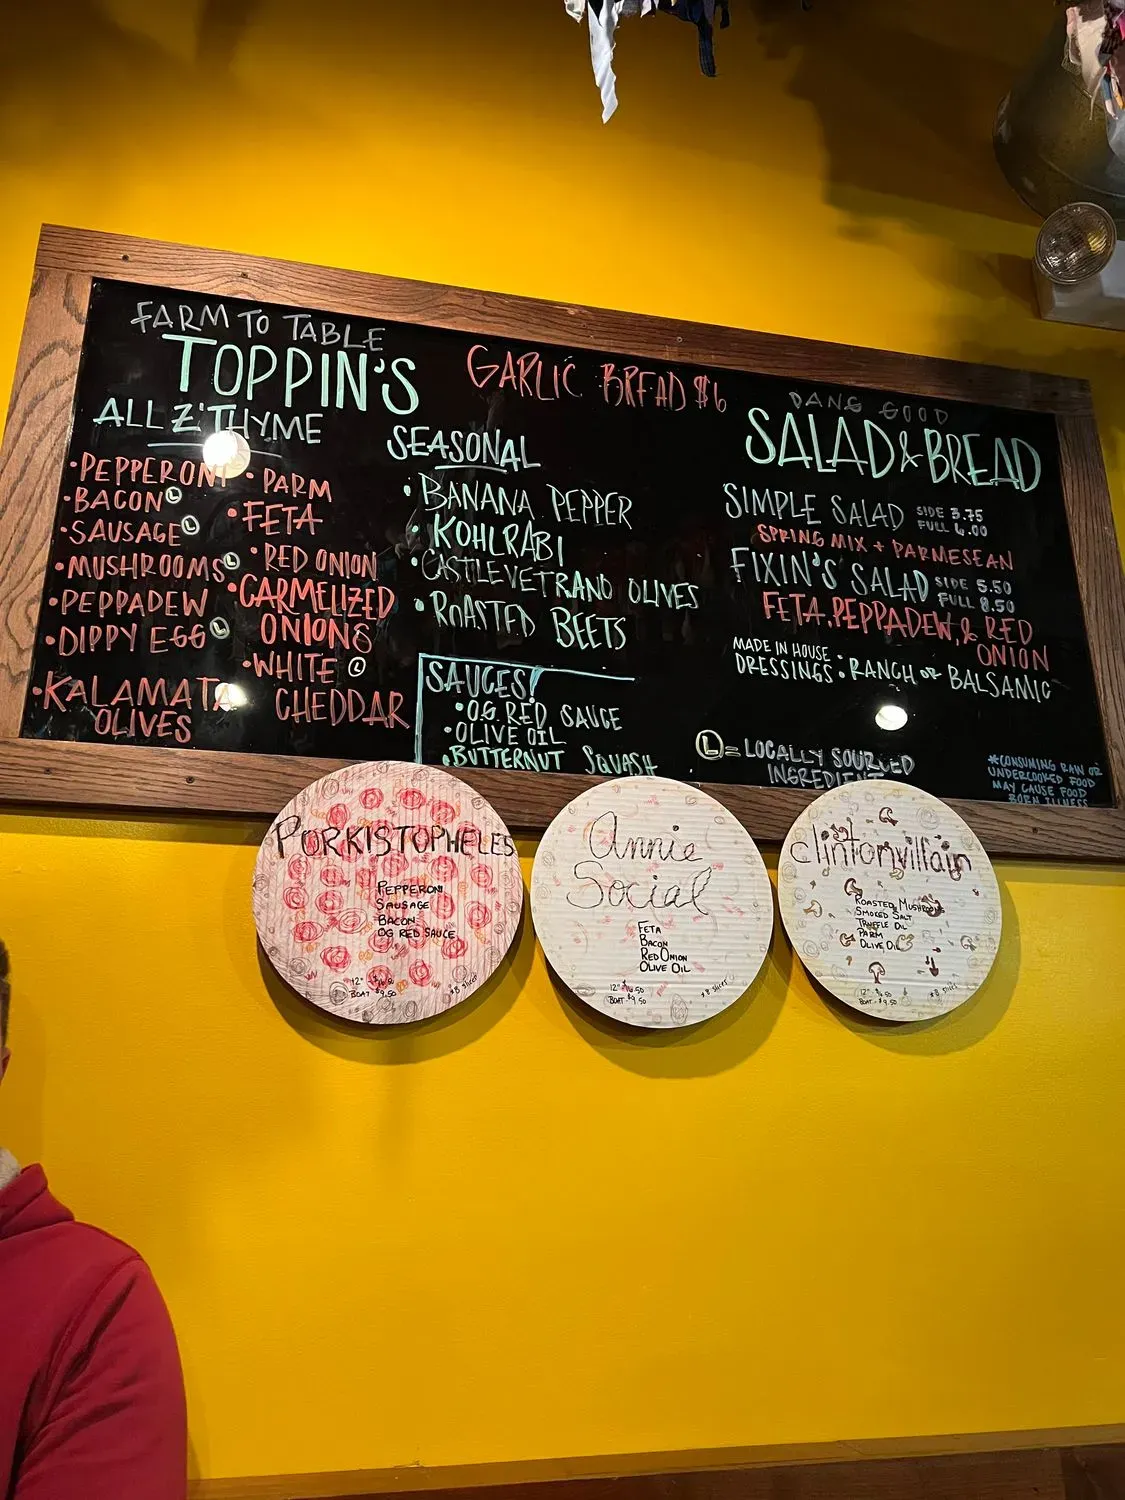 FARM TO TABLE
TOPPIN'S
ALL Z'THYME
• PEPPERONI
• BACON Ⓛ
• SAUSAGE Ⓛ
• MUSHROOMS Ⓛ
• PEPPADEW
• DIPPY EGG Ⓛ
• KALAMATA
OLIVES
• PARM
• FETA
• RED ONION
• CARMELIZED
ONIONS
• WHITE Ⓛ
CHEDDAR
GARLIC BREAD $6
SEASONAL
• BANANA PEPPER
• KOHLRABI
• CASTLEVETRANO OLIVES
• ROASTED BEETS
SAUCES!
• O.G. RED SAUCE
• OLIVE OIL
• BUTTERNUT SQUASH
DANG GOOD
SALAD & BREAD
SIMPLE SALAD SIDE 3.75
FULL 6.00
SPRING MIX + PARMESEAN
FIXIN'S SALAD SIDE 5.50
FULL 8.50
FETA, PEPPADEW, & RED
ONION
MADE IN HOUSE
DRESSINGS: RANCH OR BALSAMIC
Ⓛ = LOCALLY SOURCED
INGREDIENT
*CONSUMING RAW OR
UNDERCOOKED FOOD
MAY CAUSE FOOD
BORN ILLNESS
PORKISTOPHELES
PEPPERONI
SAUSAGE
BACON
OG RED SAUCE
12" $16.50
BOAT $9.50
*8 slices
Annie
Social
FETA
BACON
RED ONION
OLIVE OIL
12" $16.50
BOAT $9.50
*8 slices
clintonvillain
ROASTED MUSHROOMS
SMOKED SALT
TRUFFLE OIL
PARM
OLIVE OIL
12" $16.50
BOAT $9.50
*8 slices